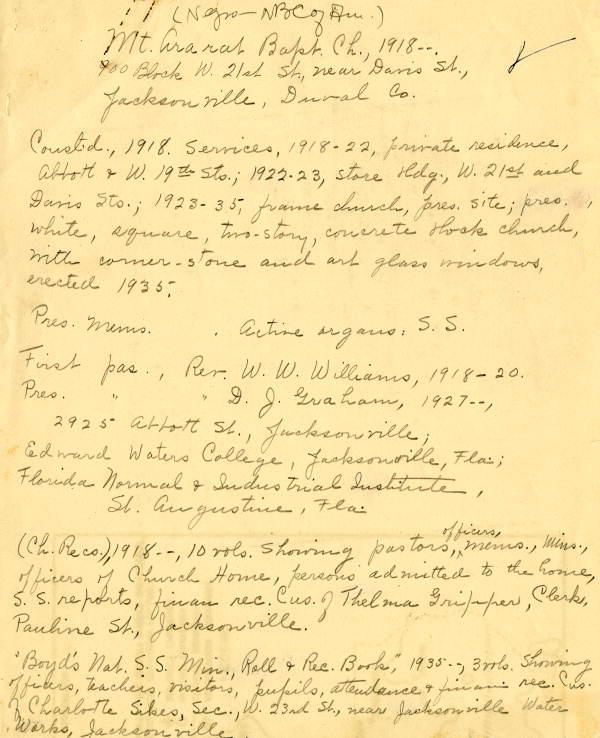 (Negro - NBC of Am.)
Mt. Ararat Bapt. Ch., 1918--.
900 Block W. 21st St., near Davis St.,
Jacksonville, Duval Co.
Constd., 1918. Services, 1918-22, private residence,
Abbott & W. 19th Sts.; 1922-23, store bldg., W. 21st and
Davis Sts.; 1923-35, frame church, pres. site; pres.,
white, square, two-story, concrete block church,
with corner-stone and art glass windows,
erected 1935.
Pres. mems. . Active organs: S. S.
First pas., Rev. W. W. Williams, 1918-20.
Pres. " " D. J. Graham, 1927--,
2925 Abbott St., Jacksonville;
Edward Waters College, Jacksonville, Fla.;
Florida Normal & Industrial Institute,
St. Augustine, Fla.
(Ch. Recs.), 1918--, 10 vols. Showing pastors, officers, mems., Mins.,
officers of Church Home, persons admitted to the home,
S. S. reports, finan rec. Cus. of Thelma Gripper, Clerk,
Pauline St., Jacksonville.
"Boyd's Nat. S. S. Min., Roll & Rec. Book", 1935--, 3 vols. Showing
officers, teachers, visitors, pupils, attendance & finan rec. Cus.
of Charlotte Sikes, Sec., W. 23rd St., near Jacksonville Water
Works, Jacksonville.